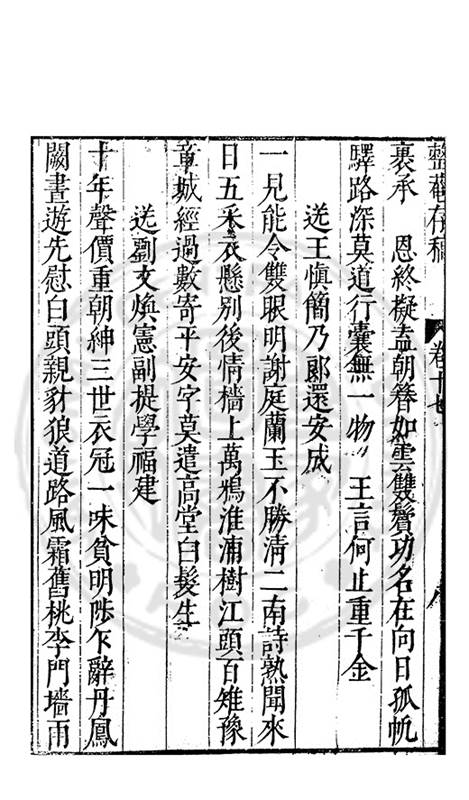 整菴存稿 卷十七 八
襄承 恩終擬盍朝簪如雲雙鬢功名在向日孤帆
驛路深莫道行囊無一物 王言何止重千金
送王慎簡乃郞還安成
一見能令雙眼明謝庭蘭玉不勝淸二南詩熟聞來
日五采衣懸別後情檣上萬鴉淮浦樹江頭百雉豫
章城經過數寄平安字莫遣高堂白髮生
送劉文煥憲副提學福建
十年聲價重朝紳三世衣冠一味貧明陟乍辭丹鳳
闕晝遊先慰白頭親豺狼道路風霜舊桃李門墻雨